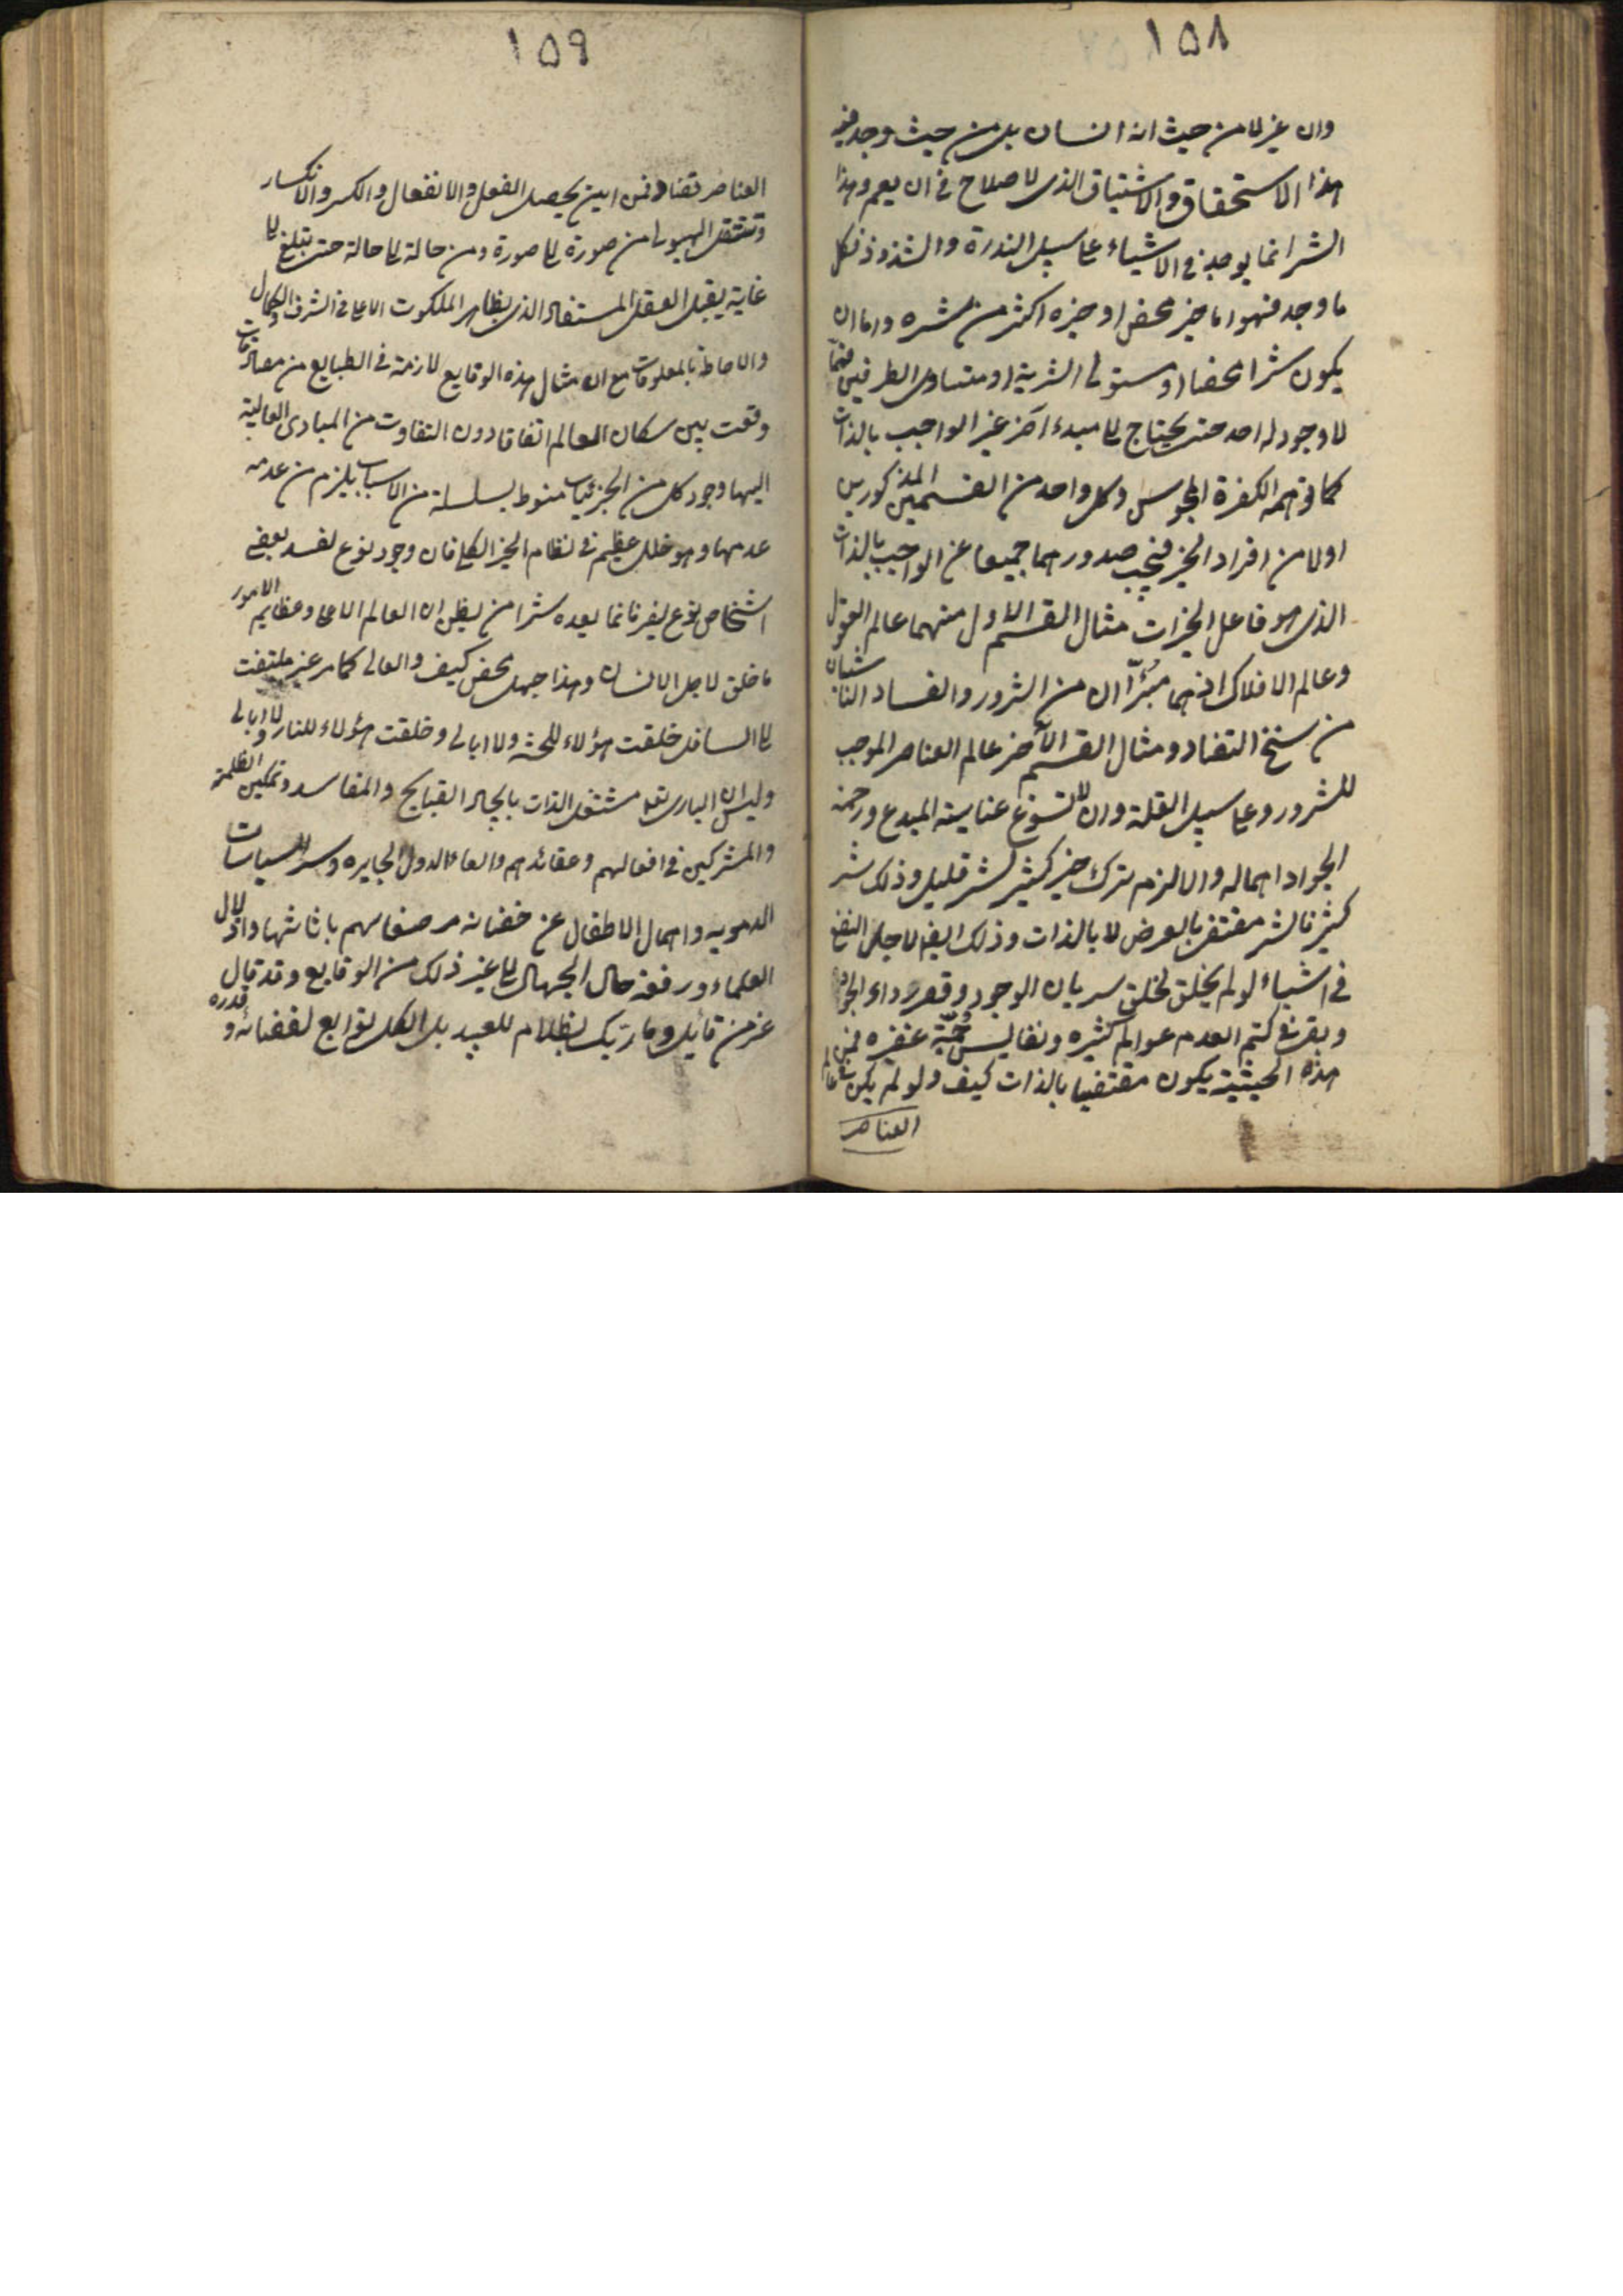 ١٥٨
وان غير لا من حيث انه انسان بل من حيث وجد فيه
هذا الاستحقاق والاشتياق الذى لا صلاح فى ان يعم وهذا
الشر انما يوجد فى الاشياء على سبيل الندرة والشذوذ فكل
ما وجد فهو اما خير محض او خيره اكثر من شره واما ان
يكون شرا محضا او مستولى الشرية او متساوى الطرفين فمما
لا وجود له احد حتى يحتاج الى مبدء آخر غير الواجب بالذات
كما توهمه الكفرة المجوس وكل واحد من القسمين المذكورين
اولا من افراد الخير فيجب صدورهما جميعا عن الواجب بالذات
الذى هو فاعل الخيرات مثال القسم الاول منهما عالم العقول
وعالم الافلاك اذ هما مبرّآان من الشرور والفساد الناشيان
من سنخ التضاد ومثال القسم الآخر عالم العناصر الموجب
للشرور وعلى سبيل القلة وان لا تسوغ عناية المبدع ورحمة
الجواد اهماله والا لزم ترك خير كثير لشر قليل وذلك شر
كثير فالشر مقتضى بالعرض لا بالذات وذلك ايضا لاجل النفع
فى اشياء لو لم يخلق لخلق سريان الوجود وقصر رداء الجود
وبقى فى كتم العدم عوالم كثيره ونفايس جمة غفيره فمن
هذه الحيثية يكون مقتضيا بالذات كيف ولو لم يكن عالم
العناصر
١٥٩
العناصر تضاد فمن اين يحصل الفعل والانفعال والكسر والانكسار
وتنتقل الهيولى من صورة الى صورة ومن حالة الى حالة حتى تبلغ الى
غاية يقبل العقل المستفاد الذى يظاهر الملكوت الاعلى فى الشرف والكمال
والاحاطة بالمعلومات مع ان مثال هذه الوقايع لازمة فى الطبايع من مصادمات
وقعت بين سكان العالم اتفاقا دون التفاوت من المبادى العالية
اليها وجود كل من الجزئيات منوط بسلسلة من الاسباب يلزم من عدمه
عدمها وهو خلل عظيم فى نظام الخير الكلى فان وجود نوع لفسد بعض
اشخاص نوع يضر فانما يعده شرا من يظن ان العالم الاعلى وعظايم الامور
ما خلق لاجل الانسان وهذا جهل محض كيف والعالى كما مر غير ملتفت
الى السافل خلقت هؤلاء للجنة ولا ابالى وخلقت هؤلاء للنار ولا ابالى
وليس ان البارى تعالى مشتغل الذات بايجاد القبايح والمفاسد وتمكين الظلمة
والمشركين فى افعالهم وعقائدهم والقاء الدول الجايره وسر السياسات
الدمويه واهمال الاطفال عن حضانة مرضعاتهم باناثها واذلال
العلماء ورفعة حال الجهال الى غير ذلك من الوقايع وقد قال
عز من قائل وما ربّك بظلام للعبيد بل الكل توابع لقضائه وقدره